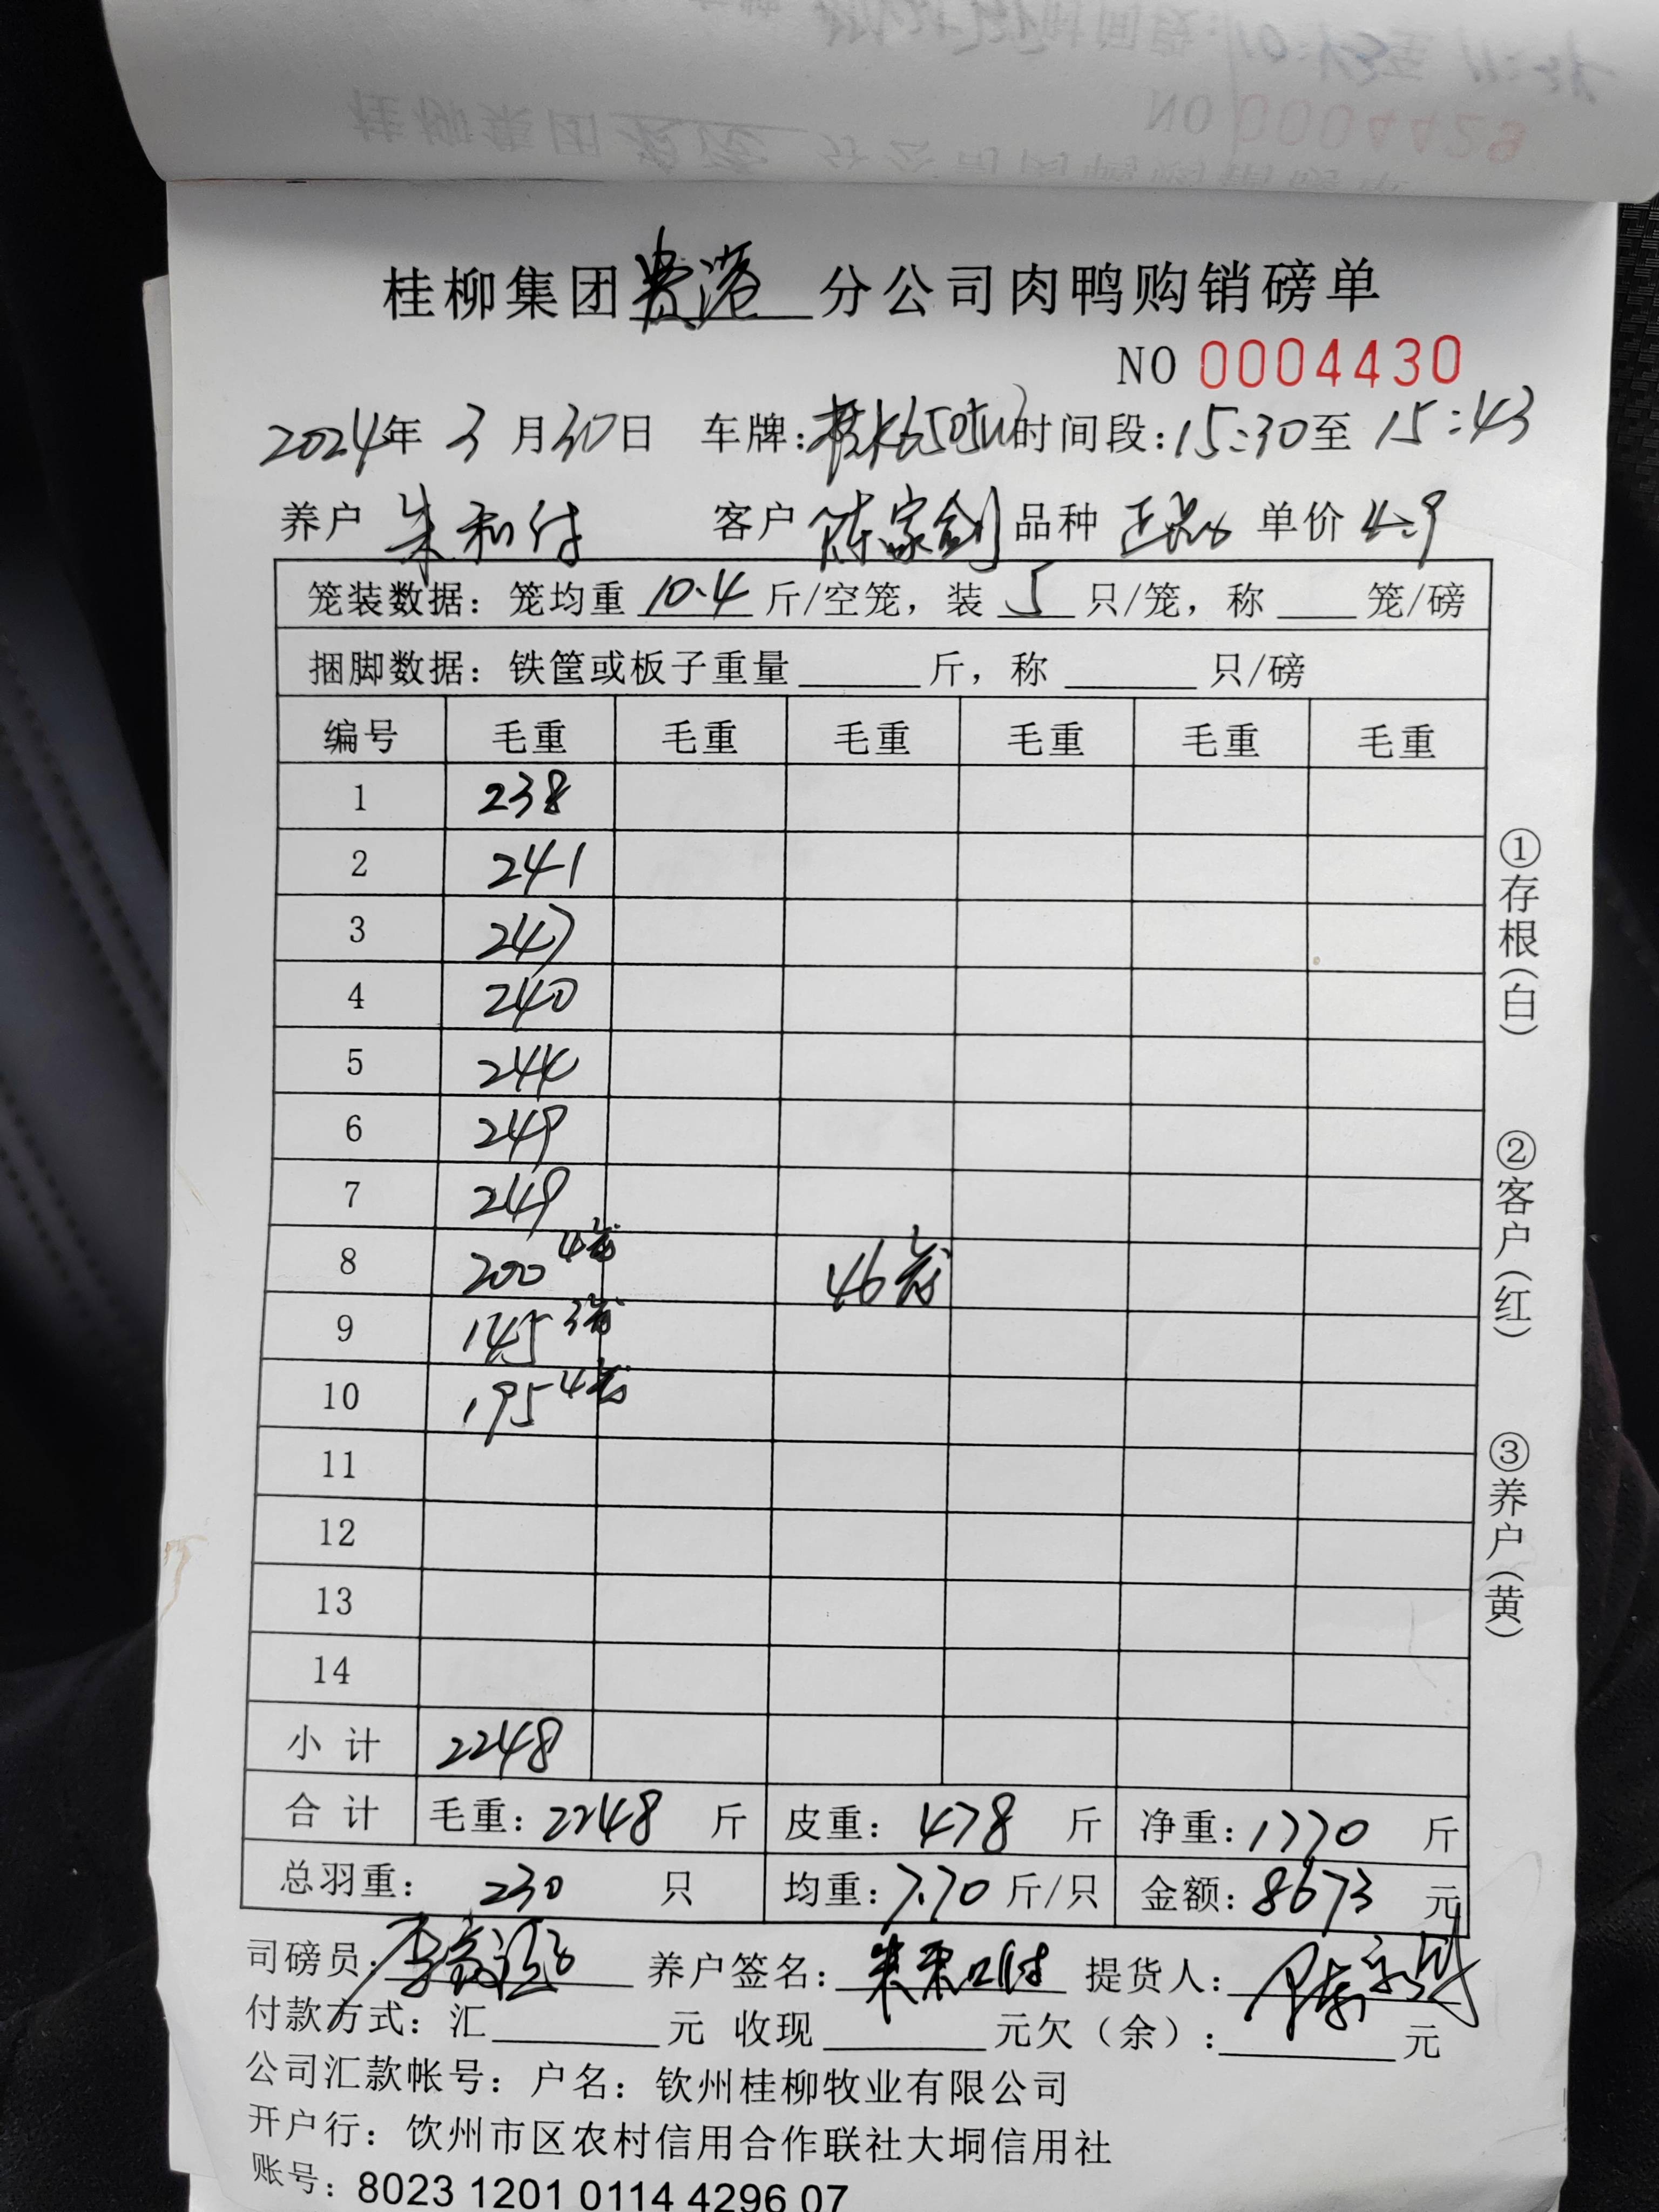 NO 0004429
桂柳集团贵港分公司肉鸭购销磅单
NO 0004430
2024年 3 月30日 车牌: 时间段:15:30至 15:43
养户 朱和付 客户 陈家剑 品种 单价 4.9
笼装数据: 笼均重 10.4 斤/空笼, 装 5 只/笼, 称 笼/磅
捆脚数据: 铁筐或板子重量 斤, 称 只/磅
编号 毛重 毛重 毛重 毛重 毛重 毛重
1 238
2 241
3 247
4 240
5 244
6 249
7 249
8 200 4笼 46笼
9 145 3笼
10 195 4笼
11
12
13
14
小 计 2248
合 计 毛重: 2248 斤 皮重: 478 斤 净重: 1770 斤
总羽重: 230 只 均重: 7.70 斤/只 金额: 8673 元
司磅员: 养户签名: 朱和付 提货人:
付款方式: 汇 元 收现 元欠(余): 元
公司汇款帐号: 户名: 钦州桂柳牧业有限公司
开户行: 钦州市区农村信用合作联社大垌信用社
账号: 8023 1201 0114 4296 07
①存根(白)
②客户(红)
③养户(黄)